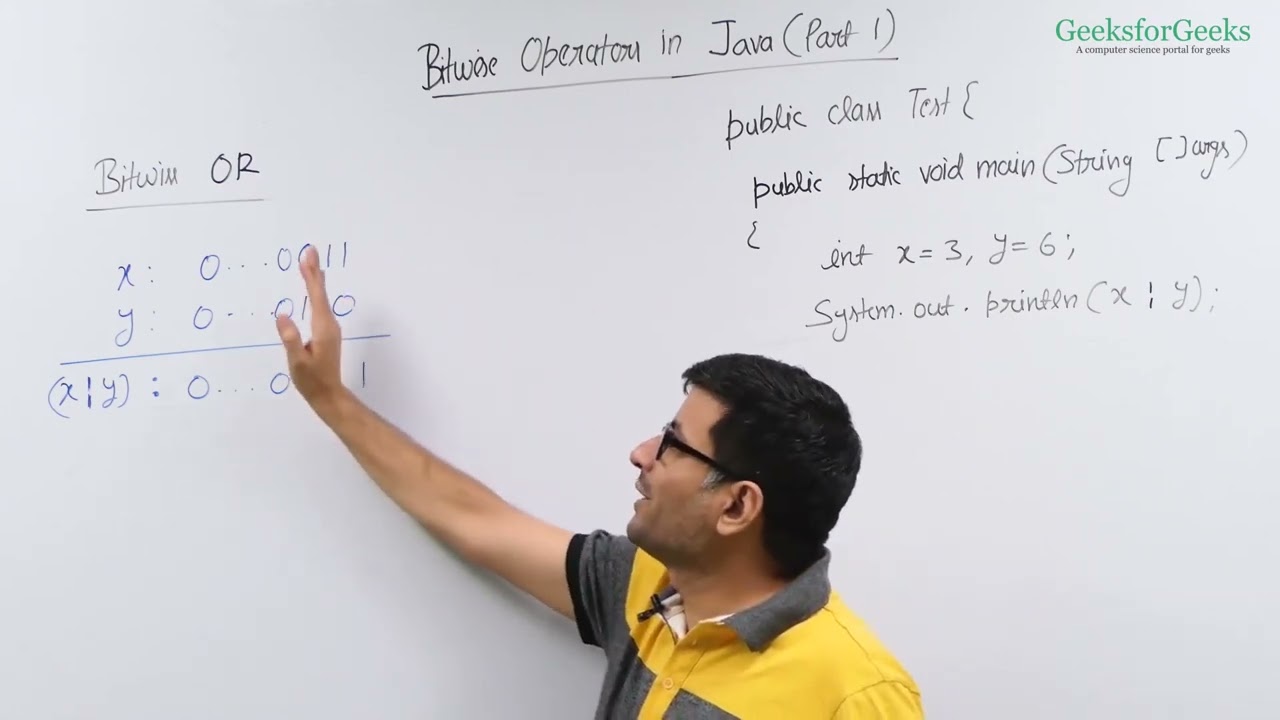 GeeksforGeeks
A computer science portal for geeks
Bitwise Operators in Java (Part 1)
public class Test {
public static void main (String [] args)
{
int x = 3, y = 6;
System.out.println(x | y);
Bitwise OR
x : 0...0011
y : 0...0110
(x|y) : 0...0 1